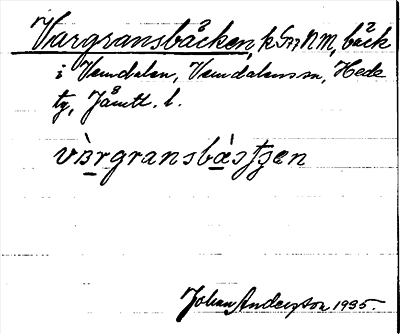 Vargransbäcken, k 5 17 NM, bäck
i Vemdalen, Vemdalens sn, Hede
tg, Jämtl. l.
vàrgransbäsʃʃɛn
Johan Anderson 1935.